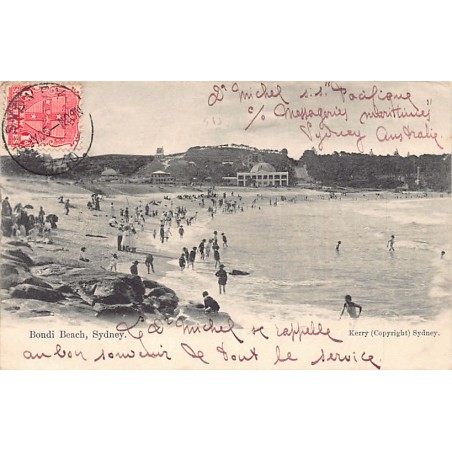 Dr Michel s.s. "Pacifique"
c/o Messageries maritimes"
Sydney Australia
Bondi Beach, Sydney.
Kerry (Copyright) Sydney.
Le Dr Michel se rappelle
au bon souvenir de tout le service.